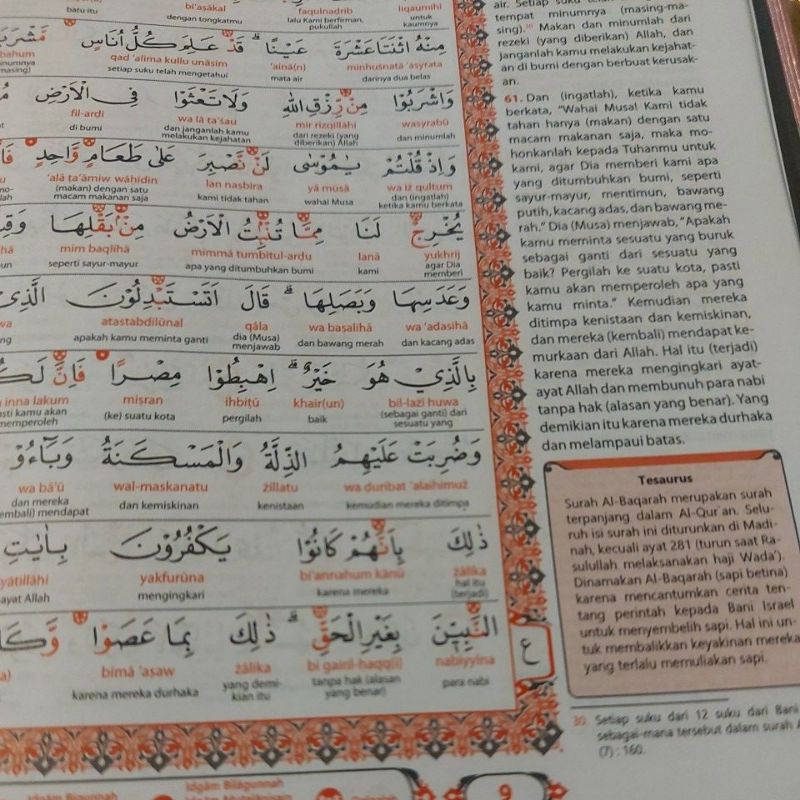 batu itu dengan tongkatmu lalu Kami berfirman, untuk
bi'aṣākal faqulnaḍrib liqaumihī
pukullah kaumnya
مِنْهُ اثْنَتَا عَشْرَةَ عَيْنًاۗ قَدْ عَلِمَ كُلُّ اُنَاسٍ
qad 'alima kullu unāsim 'aina(n) minhusnatā 'asyrata
setiap suku telah mengetahui mata air darinya dua belas
وَاشْرَبُوْا مِنْ رِّزْقِ اللّٰهِ وَلَا تَعْثَوْا فِى الْاَرْضِ
fil-arḍi wa lā ta'ṡau mir rizqillāhi wasyrabū
di bumi dan janganlah kamu dari rezeki (yang dan minumlah
melakukan kejahatan diberikan) Allah
وَاِذْ قُلْتُمْ يٰمُوْسٰى لَنْ نَّصْبِرَ عَلٰى طَعَامٍ وَّاحِدٍ
'alā ta'āmiw wāḥidin lan nasbira yā mūsā wa iż qultum
(makan) dengan satu kami tidak tahan wahai Musa dan (ingatlah)
macam makanan saja ketika kamu berkata
يُخْرِجْ لَنَا مِمَّا تُنْۢبِتُ الْاَرْضُ مِنْۢ بَقْلِهَا
mim baqlihā mimmā tumbitul-arḍu lanā yukhrij
seperti sayur-mayur apa yang ditumbuhkan bumi kami agar Dia
memberi
وَعَدَسِهَا وَبَصَلِهَاۗ قَالَ اَتَسْتَبْدِلُوْنَ الَّذِيْ
atastabdilūnal qāla wa baṣalihā wa 'adasihā
apakah kamu meminta ganti dia (Musa) dan bawang merah dan kacang adas
menjawab
بِالَّذِيْ هُوَ خَيْرٌۗ اِهْبِطُوْا مِصْرًا فَاِنَّ
inna lakum miṣran ihbiṭū khair(un) bil-lażī huwa
kamu akan (ke) suatu kota pergilah baik (sebagai ganti) dari
memperoleh sesuatu yang
وَضُرِبَتْ عَلَيْهِمُ الذِّلَّةُ وَالْمَسْكَنَةُ وَبَاۤءُوْ
wa bā'ū wal-maskanatu żillatu wa ḍuribat 'alaihimuż
dan mereka dan kemiskinan kenistaan kemudian mereka ditimpa
mendapat
ذٰلِكَ بِاَنَّهُمْ كَانُوْا يَكْفُرُوْنَ بِاٰيٰتِ
yakfurūna bi'annahum kānū żālika
ayat Allah mengingkari karena mereka hal itu
(terjadi)
النَّبِيّٖنَ بِغَيْرِ الْحَقِّۗ ذٰلِكَ بِمَا عَصَوْا
bimā 'aṣaw żālika bi gairil-ḥaqq(i) nabiyyīna
karena mereka durhaka yang demi- tanpa hak (alasan para nabi
kian itu yang benar)
ع
9
air. Setiap suku
tempat minumnya (masing-ma-
sing).30 Makan dan minumlah dari
rezeki (yang diberikan) Allah, dan
janganlah kamu melakukan kejahat-
an di bumi dengan berbuat kerusak-
an.
61. Dan (ingatlah), ketika kamu
berkata, "Wahai Musa! Kami tidak
tahan hanya (makan) dengan satu
macam makanan saja, maka mo-
honkanlah kepada Tuhanmu untuk
kami, agar Dia memberi kami apa
yang ditumbuhkan bumi, seperti
sayur-mayur, mentimun, bawang
putih, kacang adas, dan bawang me-
rah." Dia (Musa) menjawab, "Apakah
kamu meminta sesuatu yang buruk
sebagai ganti dari sesuatu yang
baik? Pergilah ke suatu kota, pasti
kamu akan memperoleh apa yang
kamu minta." Kemudian mereka
ditimpa kenistaan dan kemiskinan,
dan mereka (kembali) mendapat ke-
murkaan dari Allah. Hal itu (terjadi)
karena mereka mengingkari ayat-
ayat Allah dan membunuh para nabi
tanpa hak (alasan yang benar). Yang
demikian itu karena mereka durhaka
dan melampaui batas.
Tesaurus
Surah Al-Baqarah merupakan surah
terpanjang dalam Al-Qur'an. Selu-
ruh isi surah ini diturunkan di Madi-
nah, kecuali ayat 281 (turun saat Ra-
sulullah melaksanakan haji Wada').
Dinamakan Al-Baqarah (sapi betina)
karena mencantumkan cerita ten-
tang perintah kepada Bani Israel
untuk menyembelih sapi. Hal ini un-
tuk membalikkan keyakinan mereka
yang terlalu memuliakan sapi.
30. Setiap suku dari 12 suku dari Bani
sebagai-mana tersebut dalam surah
(7) : 160.